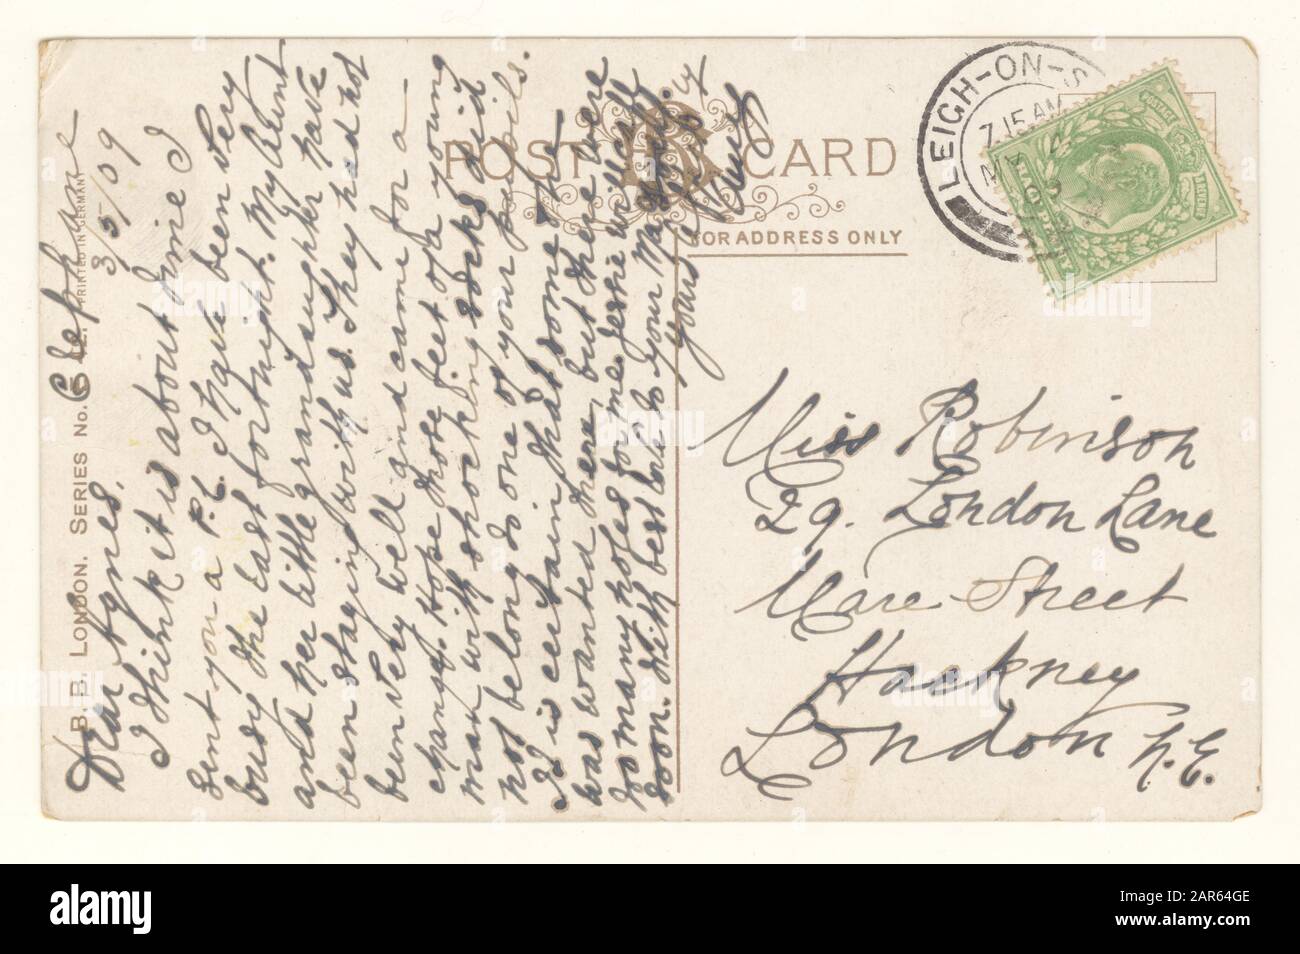 POST CARD
FOR ADDRESS ONLY
B.B. LONDON. SERIES No. E.
PRINTED IN GERMANY
LEIGH-ON-S
7.15 AM
MY
09
POSTAGE
Clef
3/5/09
Dear Agnes,
I think it is about time I
sent you a P.C. I have been very
busy the last fortnight. My Aunt
and her little granddaughter have
been staying with us. They had not
been very well and came for a
change. Hope those feet of a young
man with shocking socks did
not belong to one of your pupils.
It is certain that some
was wanted there, but there were
so many holes for me. Jessie will
soon. With best love to your Ma
yours
Miss Robinson
29. London Lane
Mare Street
Hackney
London N.E.
alamy
Image ID: 2AR64GE
www.alamy.com